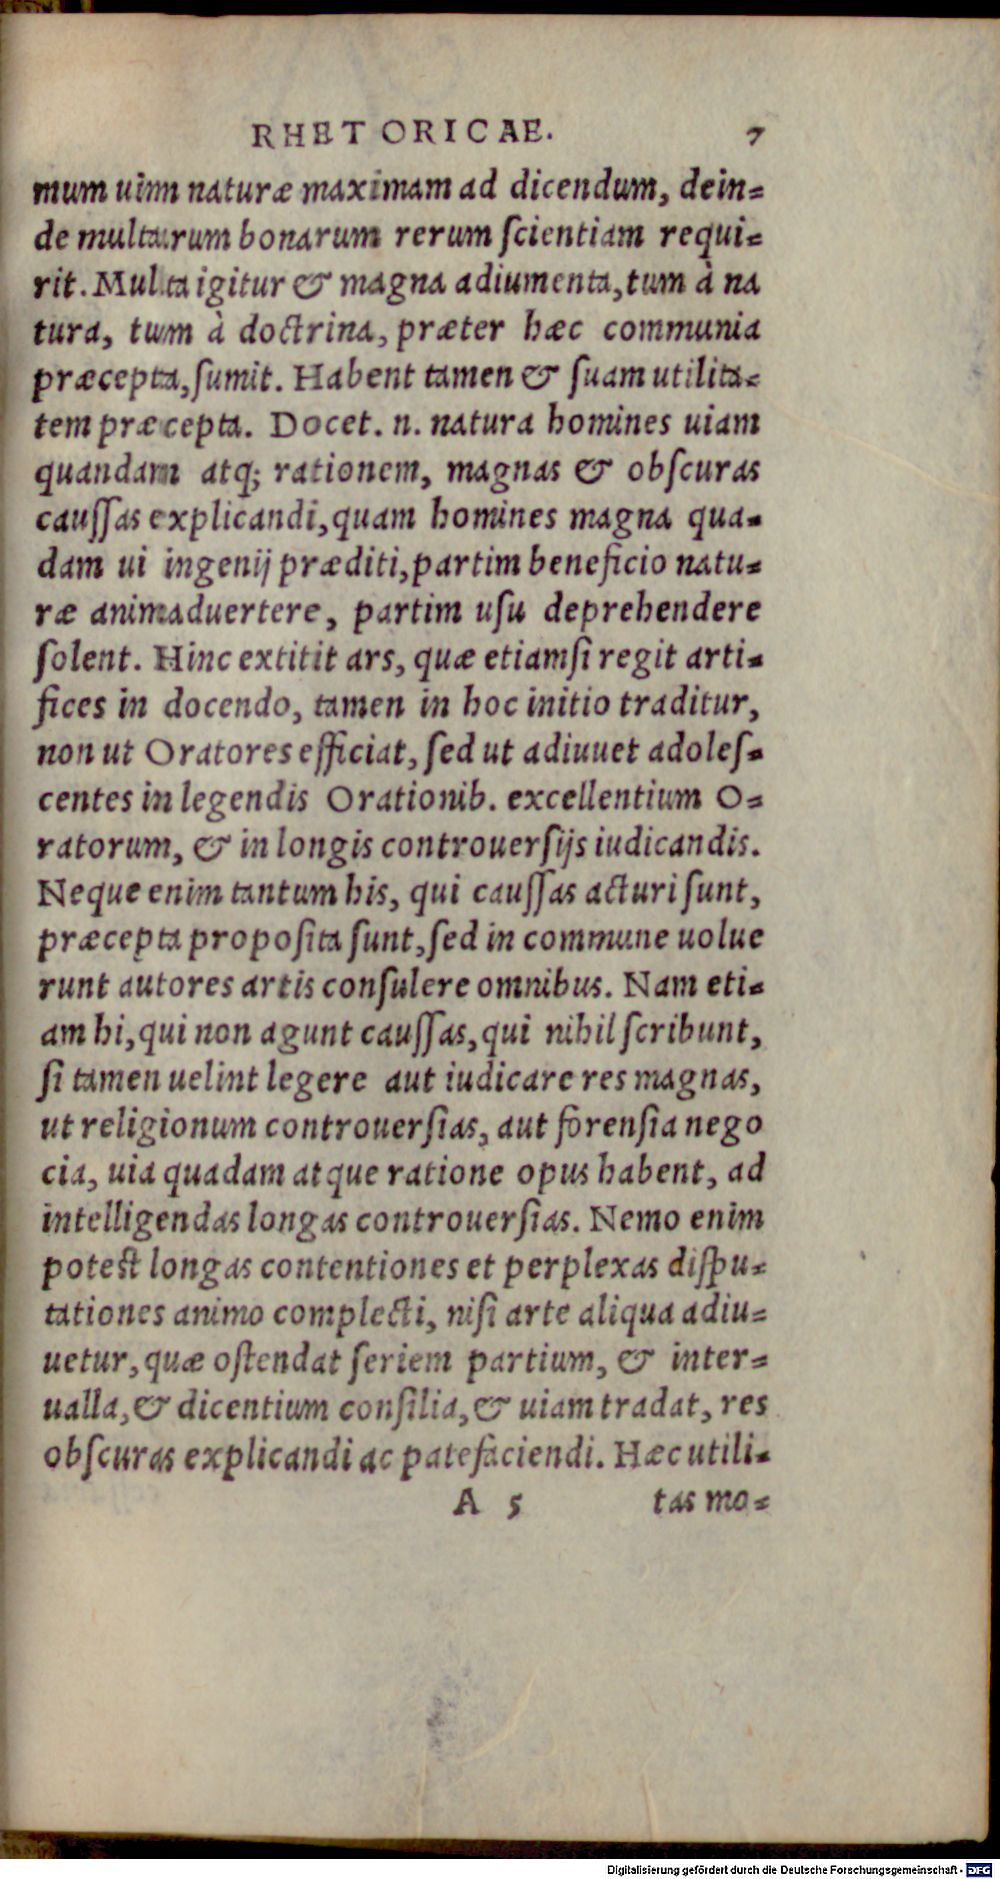 RHETORICAE. 7
mum uim naturæ maximam ad dicendum, dein-
de multarum bonarum rerum ſcientiam requi-
rit. Multa igitur & magna adiumenta, tum à na
tura, tum à doctrina, præter hæc communia
præcepta, ſumit. Habent tamen & ſuam utilita-
tem præcepta. Docet. n. natura homines uiam
quandam atq; rationem, magnas & obſcuras
cauſſas explicandi, quam homines magna qua-
dam ui ingenij præditi, partim beneficio natu-
ræ animaduertere, partim uſu deprehendere
ſolent. Hinc extitit ars, quæ etiamſi regit arti-
fices in docendo, tamen in hoc initio traditur,
non ut Oratores efficiat, ſed ut adiuuet adoleſ-
centes in legendis Orationib. excellentium O-
ratorum, & in longis controuerſijs iudicandis.
Neque enim tantum his, qui cauſſas acturi ſunt,
præcepta propoſita ſunt, ſed in commune uolue
runt autores artis conſulere omnibus. Nam eti-
am hi, qui non agunt cauſſas, qui nihil ſcribunt,
ſi tamen uelint legere aut iudicare res magnas,
ut religionum controuerſias, aut forenſia nego
cia, uia quadam atque ratione opus habent, ad
intelligendas longas controuerſias. Nemo enim
poteſt longas contentiones et perplexas diſpu-
tationes animo complecti, niſi arte aliqua adiu-
uetur, quæ oſtendat ſeriem partium, & inter-
ualla, & dicentium conſilia, & uiam tradat, res
obſcuras explicandi ac patefaciendi. Hæc utili-
A 5 tas mo-
Digitalisierung gefördert durch die Deutsche Forschungsgemeinschaft - DFG